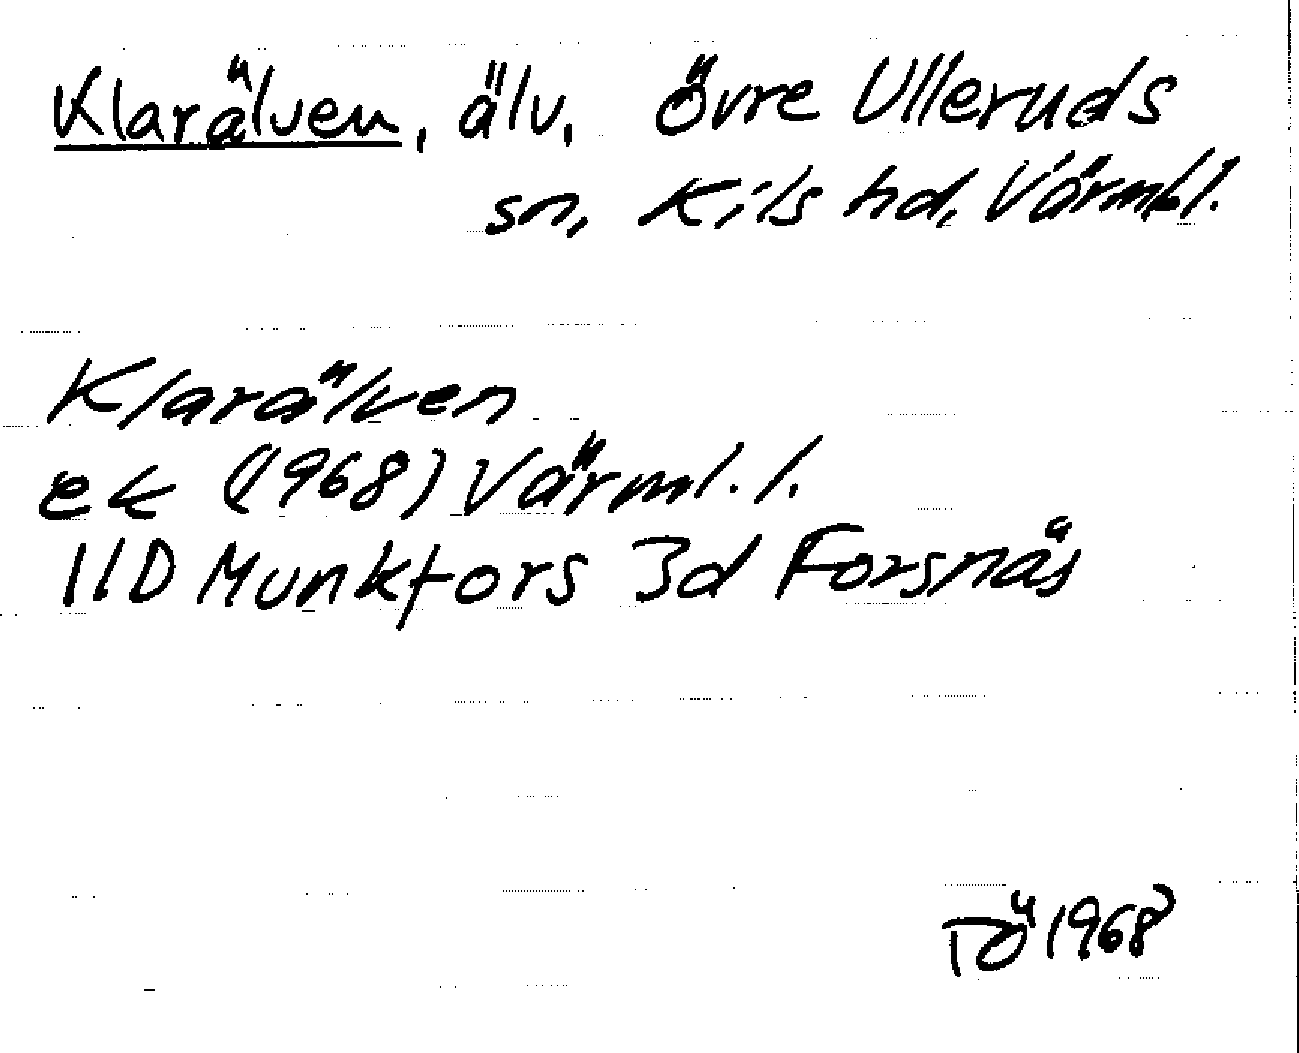 Klarälven, älv, Övre Ulleruds
sn, Kils hd, Värml. l.
Klarälven
ek (1968) Värml. l.
11D Munkfors 3d Forsnäs
TÖ 1968